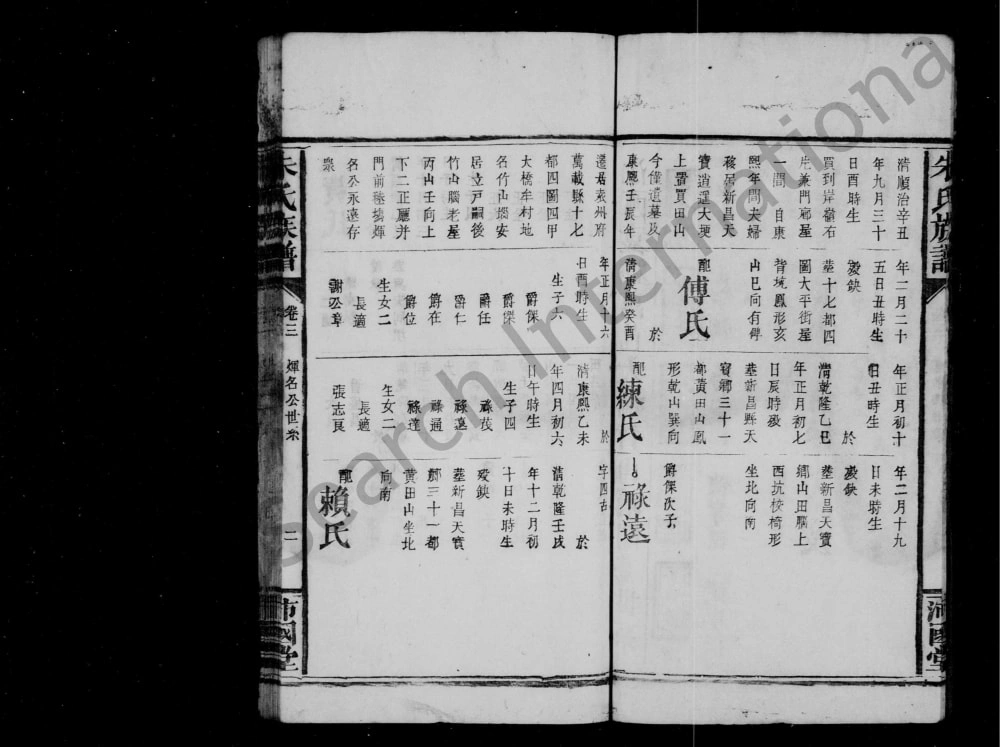 朱氏族譜
沛國堂
清順治辛丑
年九月三十
日酉時生
買到岸嶺石
一間 自康
熙年間夫婦
移居新昌天
寶逍遥大埂
上置買田山
今僅遺墓及
康熙壬辰年
年二月二十
五日丑時生
歿缺
葬十七都四
圖大平街星
背境鳳形亥
山巳向有碑
配傅氏
於
清康熙癸酉
年正月初十
日丑時生
於
清乾隆乙巳
年正月初七
日辰時歿
葬新昌縣天
寶鄉三十一
都黃田山鳳
形乾山巽向
配練氏
年二月十九
日未時生
歿缺
葬新昌天寶
鄉山田腦上
西坑校椅形
坐北向南
爵傑次子
祿遠
遷居袁州府
萬載縣十七
都四圖四甲
大橋牟村地
名竹山塅安
居立戶嗣後
竹山腦老屋
丙山壬向上
下二正廳并
門前毬墻煇
名公永遠存
衆
年正月十六
日酉時生
生子六
爵傑
爵任
爵仁
爵在
爵位
生女二
長適
謝公章
於
清康熙乙未
年四月初六
日午時生
生子四
祿茂
祿遠
祿通
祿達
生女二
長適
張志良
字四古
於
清乾隆壬戌
年十二月初
十日未時生
歿缺
葬新昌天寶
鄉三十一都
黃田山坐北
向南
配賴氏
朱氏族譜
卷三
煇名公世系
二
沛國堂